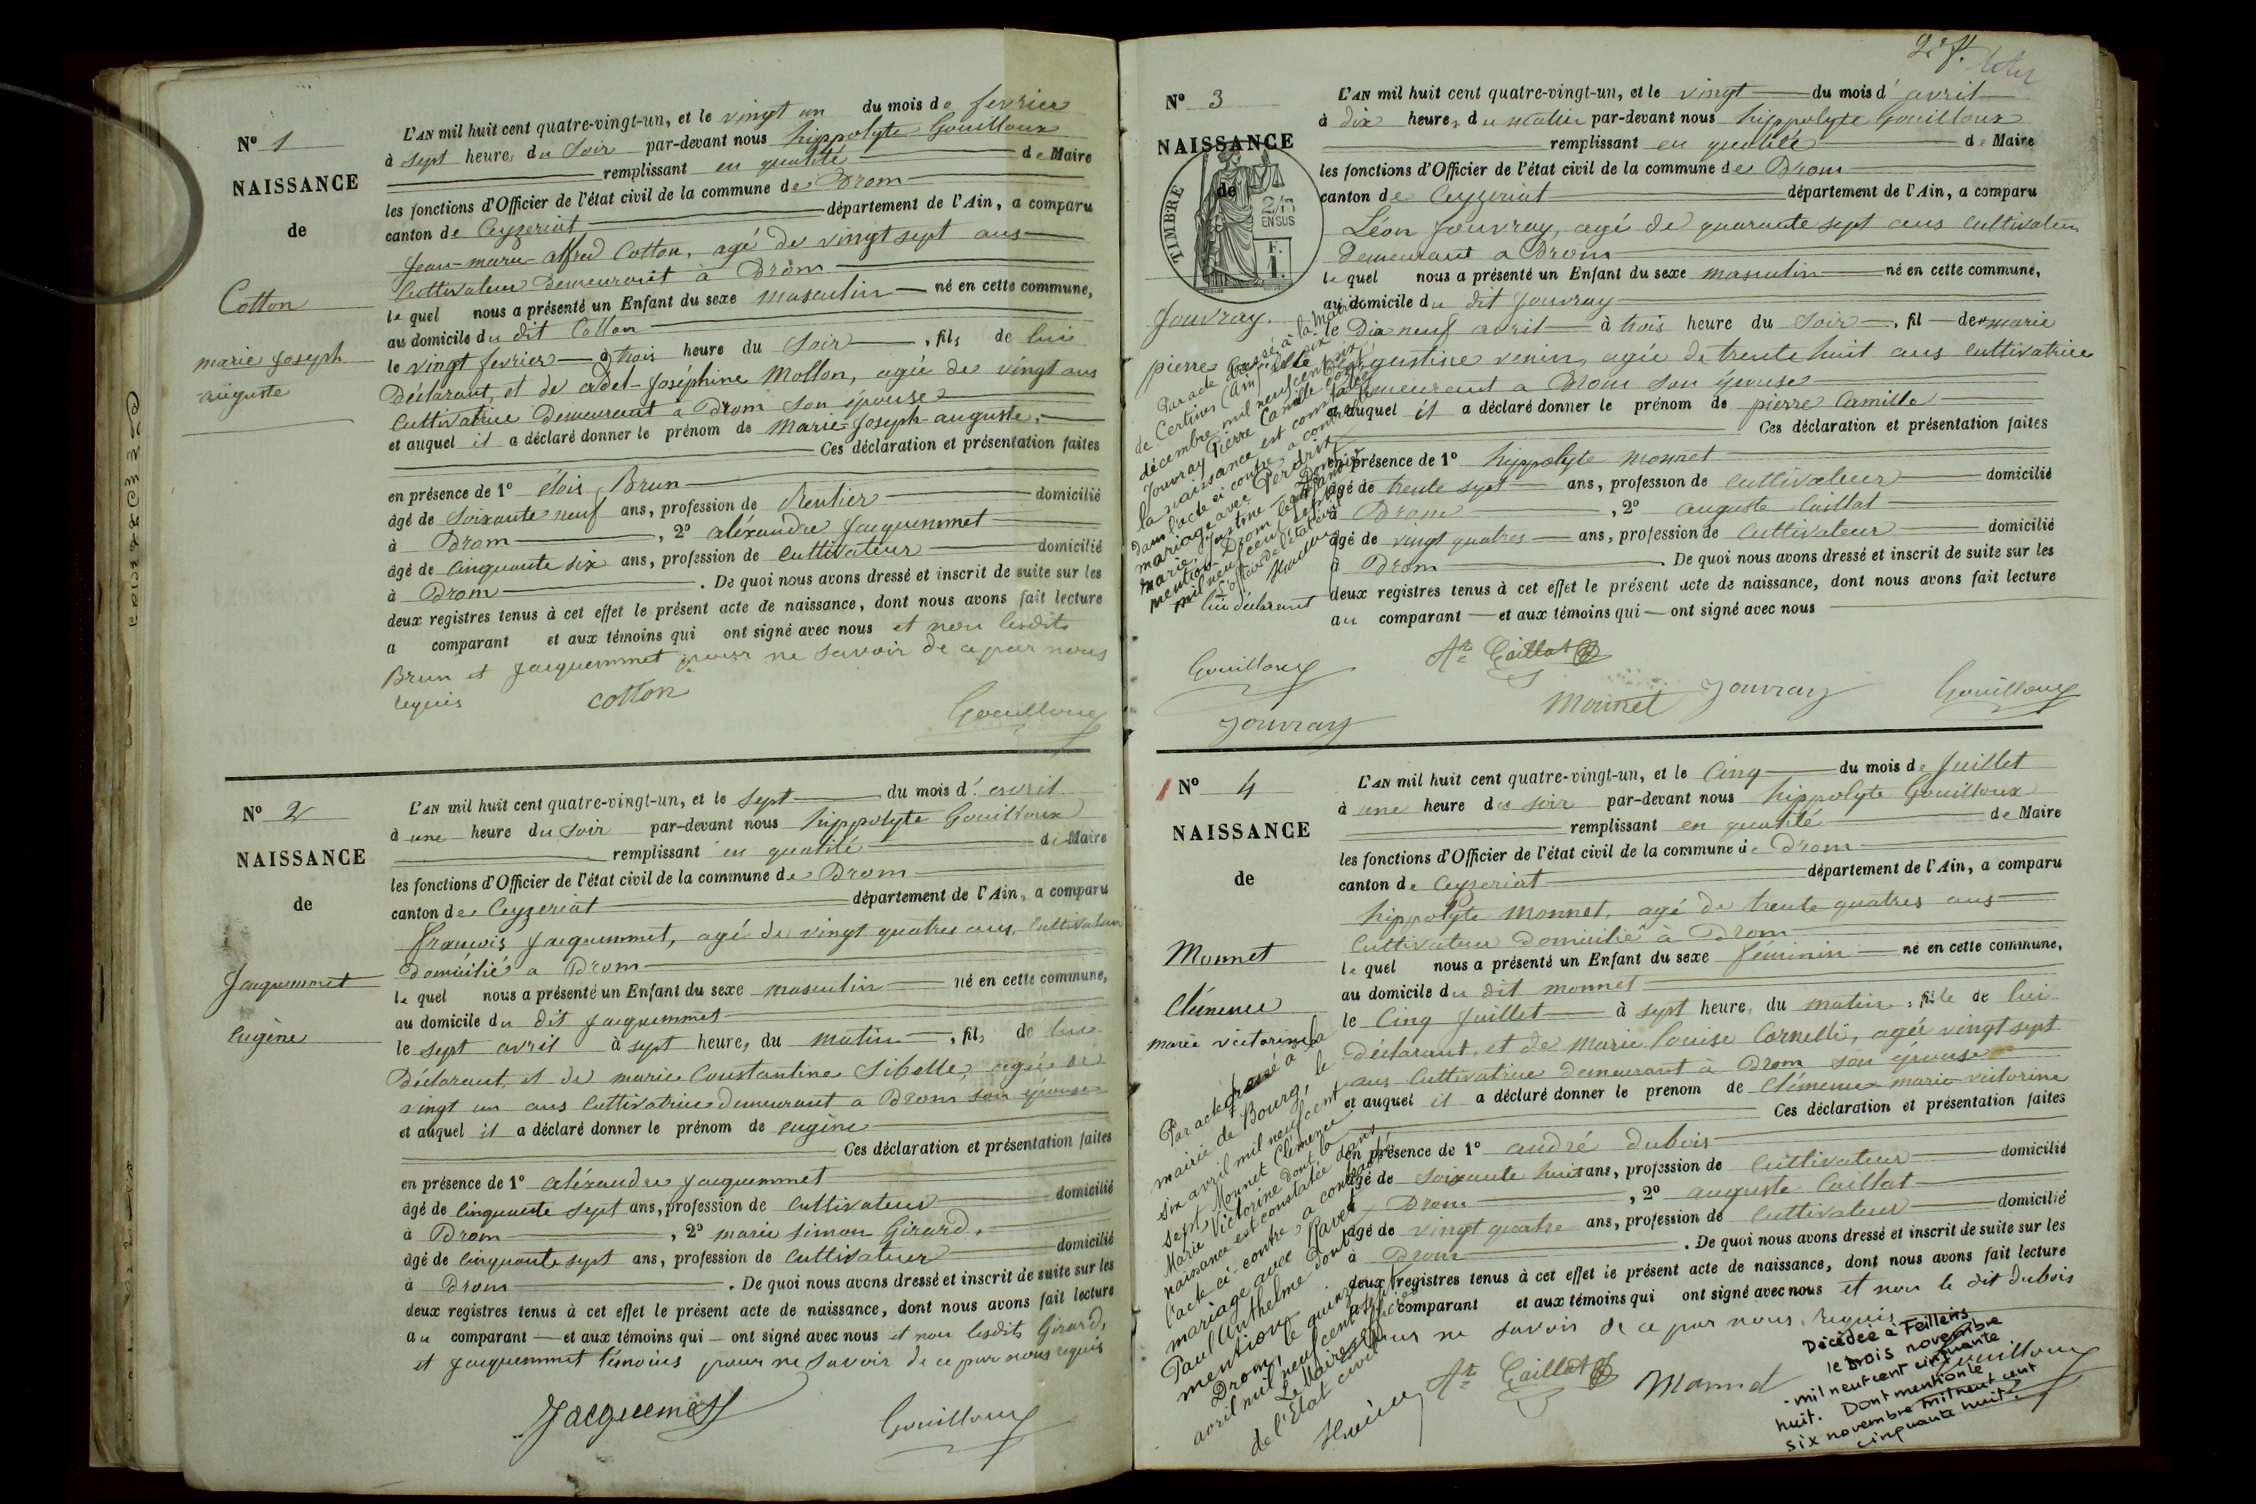 N° 1
NAISSANCE
de
Cotton
marie Joseph
auguste
L'AN mil huit cent quatre-vingt-un, et le vingt un du mois de fevrier
à sept heures du soir par-devant nous hippolyte Gouilloux
remplissant en qualité de Maire
les fonctions d'Officier de l'état civil de la commune de Drom
canton de Ceyzeriat département de l'Ain, a comparu
Jean-marie-alfred Cotton, agé de vingt sept ans
Cultivateur Demeurant à Drom
le quel nous a présenté un Enfant du sexe masculin né en cette commune,
au domicile du dit Cotton
le vingt fevrier à trois heure du Soir, fils de lui
Déclarant, et de adel-Joséphine Mollon, agée de vingt ans
Cultivatrice Demeurant a Drom Son épouse
et auquel il a déclaré donner le prénom de Marie-Joseph-auguste.
Ces déclaration et présentation faites
en présence de 1° élois Brun
âgé de Soixante neuf ans, profession de Rentier domicilié
à Drom, 2° aléxandre Jacquemmet
âgé de Cinquante six ans, profession de Cultivateur domicilié
à Drom. De quoi nous avons dressé et inscrit de suite sur les
deux registres tenus à cet effet le présent acte de naissance, dont nous avons fait lecture
a comparant et aux témoins qui ont signé avec nous et non lesdits
Brun et Jacquemmet pour ne Savoir de ce par nous
requis
Cotton
Gouilloux
N° 2
NAISSANCE
de
Jacquemmet
Eugène
L'AN mil huit cent quatre-vingt-un, et le Sept du mois d'avril
à une heure du Soir par-devant nous hippolyte Gouilloux
remplissant en qualité de Maire
les fonctions d'Officier de l'état civil de la commune de Drom
canton de Ceyzeriat département de l'Ain, a comparu
François Jacquemmet, agé de vingt quatres ans, Cultivateur
Domicilié a Drom
le quel nous a présenté un Enfant du sexe masculin né en cette commune,
au domicile du dit Jacquemmet
le sept avril à sept heures du matin, fils de lui
Déclarant, et de marie Constantine Sibelle, agée de
vingt un ans Cultivatrice demeurant a Drom son épouse
et auquel il a déclaré donner le prénom de eugène
Ces déclaration et présentation faites
en présence de 1° aléxandre Jacquemmet
âgé de Cinquante sept ans, profession de Cultivateur domicilié
à Drom, 2° marie simon Girard,
âgé de Cinquante sept ans, profession de Cultivateur domicilié
à Drom. De quoi nous avons dressé et inscrit de suite sur les
deux registres tenus à cet effet le présent acte de naissance, dont nous avons fait lecture
au comparant et aux témoins qui ont signé avec nous et non lesdits Girard,
et Jacquemmet témoins pour ne Savoir de ce par nous requis
Jacquemet
Gouilloux
2e f.
N° 3
NAISSANCE
de
TIMBRE
2/10
EN SUS
F.
1.
Jouvray.
pierre Camille
Par acte passé à la Mairie
de Certines (Ain), le dix
décembre mil neuf cent six
Jouvray Pierre Camille dont
la naissance est constatée
dans l'acte ci contre a contracté
mariage avec Perdrix
marie Justine. Dont
mention. Drom le
mil neuf cent sept
L'officier de l'état civil
lui déclarant
L'AN mil huit cent quatre-vingt-un, et le vingt du mois d'avril
à dix heures du matin par-devant nous hippolyte Gouilloux
remplissant en qualité de Maire
les fonctions d'Officier de l'état civil de la commune de Drom
canton de Ceyzeriat département de l'Ain, a comparu
Léon Jouvray, agé de quarante sept ans Cultivateur
Demeurant a Drom
le quel nous a présenté un Enfant du sexe masculin né en cette commune,
au domicile du dit Jouvray
le Dix neuf avril à trois heure du Soir, fil de marie
gustine venin, agée de trente huit ans Cultivatrice
Demeurant a Drom Son épouse
et auquel il a déclaré donner le prénom de pierre Camille
Ces déclaration et présentation faites
en présence de 1° hippolyte monnet
âgé de trente sept ans, profession de Cultivateur domicilié
à Drom, 2° auguste Caillat
âgé de vingt quatres ans, profession de Cultivateur domicilié
à Drom. De quoi nous avons dressé et inscrit de suite sur les
deux registres tenus à cet effet le présent acte de naissance, dont nous avons fait lecture
au comparant et aux témoins qui ont signé avec nous
Gouilloux
Jouvray
Ate Caillat
Monnet
Jouvray
Gouilloux
N° 4
NAISSANCE
de
Monnet
Clémence
Marie victorine
Par acte passé à la
mairie de Bourg, le
six avril mil neuf cent
sept, Monnet Clémence
Marie Victorine dont la
naissance est constatée dans
l'acte ci contre, a contracté
mariage avec Ravet
Paul Anthelme dont
mention
Drom, le quinze
avril mil neuf cent sept
Le Maire officier
de l'Etat civil
L'AN mil huit cent quatre-vingt-un, et le Cinq du mois de Juillet
à une heure du soir par-devant nous hippolyte Gouilloux
remplissant en qualité de Maire
les fonctions d'Officier de l'état civil de la commune de Drom
canton de Ceyzeriat département de l'Ain, a comparu
hippolyte Monnet, agé de trente quatres ans
Cultivateur Domicilié à Drom
le quel nous a présenté un Enfant du sexe féminin né en cette commune,
au domicile du dit monnet
le Cinq Juillet à sept heures du matin, fille de lui
déclarant, et de Marie Louise Cornelli, agée vingt sept
ans Cultivatrice demeurant à Drom son épouse
et auquel il a déclaré donner le prenom de Clémence marie-victorine
Ces déclaration et présentation faites
en présence de 1° andré dubois
âgé de soixante huit ans, profession de Cultivateur domicilié
à Drom, 2° auguste Caillat
âgé de vingt quatre ans, profession de Cultivateur domicilié
à Drom. De quoi nous avons dressé et inscrit de suite sur les
deux registres tenus à cet effet le présent acte de naissance, dont nous avons fait lecture
comparant et aux témoins qui ont signé avec nous et non le dit dubois
pour ne savoir de ce par nous requis
Ate Caillat
Monnet
Gouilloux
Décédée à Feillens
le trois novembre
mil neuf cent cinquante
huit. Dont mention le
six novembre mil neuf cent
cinquante huit.